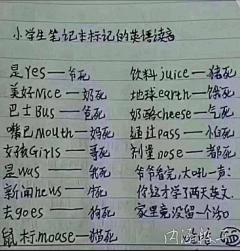 小学生笔记本标记的英语读音
是yes—爷死
美好Nice—奶死
巴士Bus—爸死
嘴巴Mouth—妈死
女孩Girls—哥死
是was—死
新闻news—死
去goes—狗死
鼠标moase—猫死
饮料juice—猪死
地球earth—饿死
奶酪cheese—气死
通过pass—怕死
nose—都死
爷爷看完,大吼一声:
你这才学了两天英文.
家里竟没留一个活口